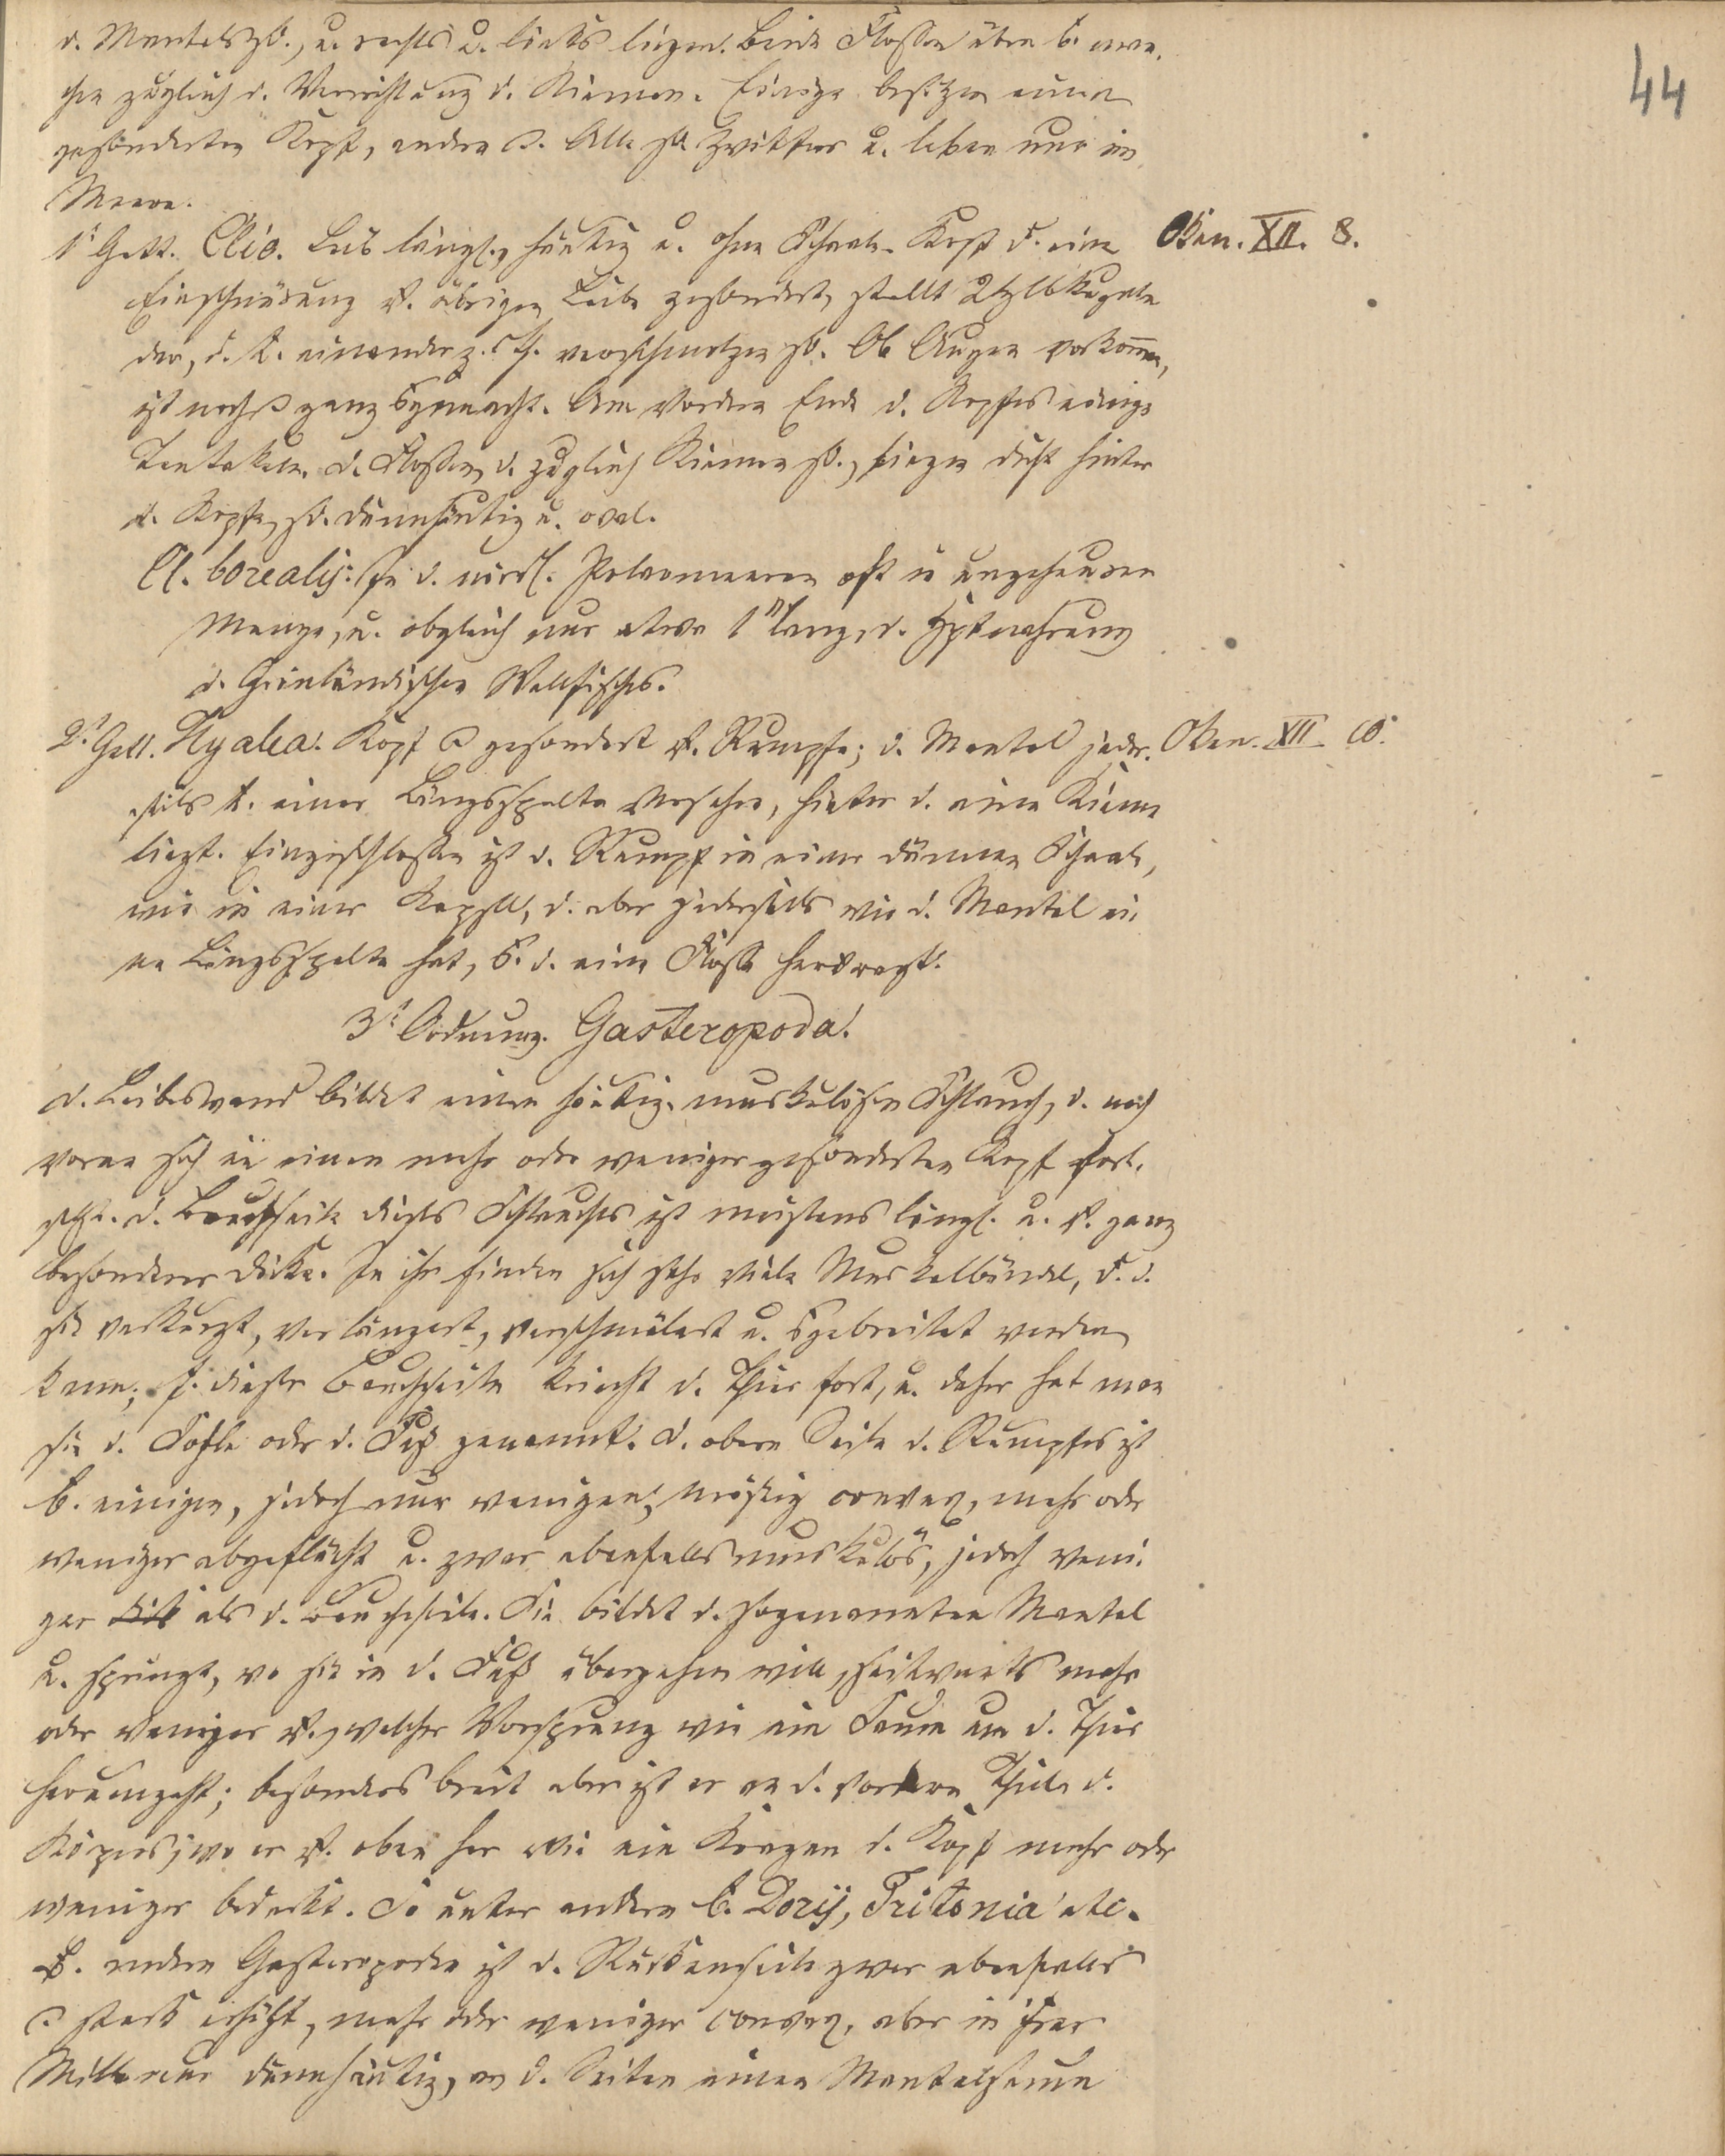 44
d. Mantels sd., u. rechts u. links liegen. Beide Flossen üben b. man¬
chen zugleich d. Verrichtung d. Kiemen. Einige besitzen einen
gesonderten Kopf, andre . Alle sd. Zwitter u. leben nur im
Meere.
1e Gatt. Clio. Leib längl., häutig u. ohne Schaale. Kopf d. eine Oken. XII. 8.
Einschnürung v. übrigen Leibe gesondert, stellt 2 Halbkugeln
dar, d. einander z. Th. verschmolzen sd. Ob Augen vorkommen,
ist noch ganz gemacht. Am vordern Ende d. Kopfes einige
Tentakeln. d. Flossen, d. zugleich Kiemen sd., liegen dicht hinter
d. Kopfe, sd. dünnhäutig u. oval.
Cl. borealis: In d. nördl. Polarmeeren oft in ungeheurer
Menge, u. obgleich nur etwa 1" lang, d. Hptnahrung
d. Grönländischen Wallfisches.
2e Gatt. Hyalea. Kopf gesondert v. Rumpfe; d. Mantel jeder¬ Oken. XII
seits einer Längsspalte versehn, hinter d. eine Kieme
liegt. Eingeschlossen ist d. Rumpf in einer dünnen Schaale,
wie in einer Kapsel, d. aber jederseits wie d. Mantel ei¬
ne Längsspalte hat, d. eine Flosse hervorragt.
3e Ordnung. Gasteropoda.
d. Leibeswand bildet einen häutig-muskulösen Schlauch, d. nach
vorne sich in einen mehr oder weniger gesonderten Kopf fort¬
setzt. d. Bauchseite dieses Schlauches ist meistens längl. u. v. ganz
besonderer Dicke. In ihr finden sich sehr viele Muskelbündel, d. d.
sie verkürzt, verlängert, verschmälert u. gebreitet werden
kann; dieser Bauchseite kriecht d. Thier fort, u. daher hat man
sie d. Sohle oder d. Fuß genannt. d. obere Seite d. Rumpfes ist
b. einigen, jedoch nur wenigen, mäßig convex, mehr oder
weniger abgeflacht u. zwar ebenfalls muskulös, jedoch weni¬
ger als d. Bauchseite. Sie bildet d. sogenannten Mantel
u. springt, wo sie in d. Fuß übergehen will, seitwärts mehr
oder weniger v., welcher Vorsprung wie ein Saum um d. Thier
herumgeht; besonders breit aber ist er an d. vordern Theile d.
Körpers, wo er v. oben her wie ein Kragen d. Kopf mehr oder
weniger bedeckt. So unter andern b. Doris, Tritonia etc.
B. andern Gasteropoden ist d. Rückenseite zwar ebenfalls
stark erhöht, mehr oder weniger convex, aber in ihrer
Mitte nur dünnhäutig, an d. Seiten einen Mantelsaum